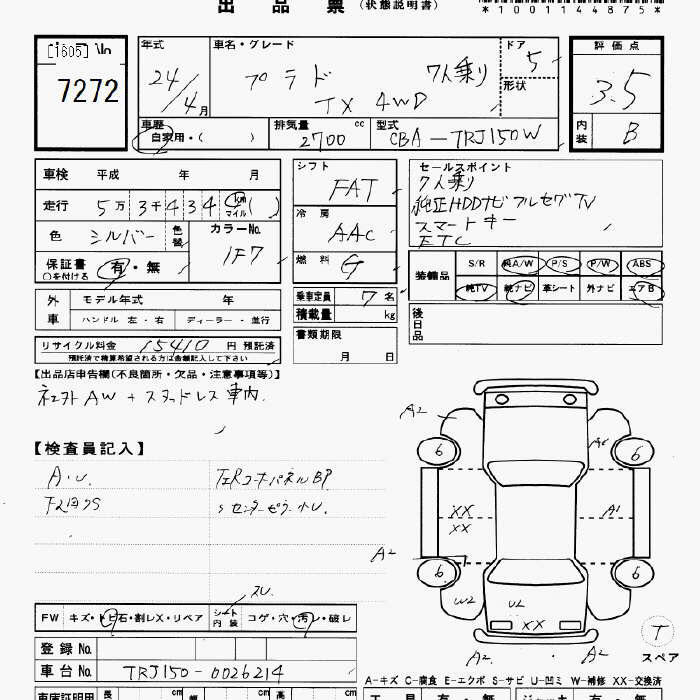 出 品 票 (状態説明書)
*1001144875*
[1605]
7272
年式
24/4月
車名・グレード
プラド 7人乗り
TX 4WD
ドア 5
形状
評価点
3.5
内装 B
車歴
自家用・( )
排気量 cc
2700
型式
CBA-TRJ150W
車検 平成 年 月
走行 5万 3千 4 3 4 km マイル ( )
色 シルバー 色替
カラーNo.
1F7
保証書 有・無
○を付ける
シフト
FAT
冷房
AAC
燃料 G
セールスポイント
7人乗り
純正HDDナビ フルセグTV
スマートキー
ETC
装備品 S/R 純A/W P/S P/W ABS
純TV 純ナビ 革シート 外ナビ エアB
外車 モデル年式 年
ハンドル 左・右 ディーラー・並行
乗車定員 7 名
積載量 kg
後日品
リサイクル料金 15410 円 預託済
預託済で精算希望される方は金額記入して下さい
書類期限
月 日
【出品店申告欄(不良箇所・欠品・注意事項等)】
社外AW + スタッドレス 車内.
【検査員記入】
A・U
A2
A2
A1
XX
XX
A2
W2
U2
XX
6
6
6
6
T
スペア
A2
A2
FW キズ・トビ石・割レX・リペア シート内装 コゲ・穴・汚レ・破レ
登録No.
車台No. TRJ150-0026214
A-キズ C-腐食 E-エクボ S-サビ U-凹ミ W-補修 XX-交換済
車庫証明用 長 cm 幅 cm 高 cm
工具 有・無 ジャッキ 有・無